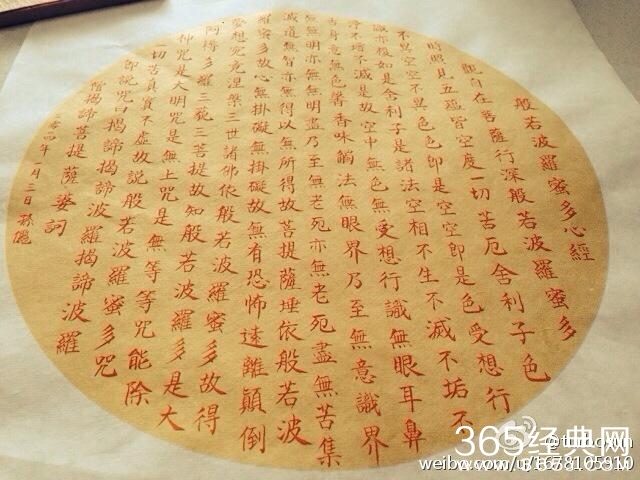 般若波羅蜜多心經
觀自在菩薩行深般若波羅蜜多
時照見五蘊皆空度一切苦厄舍利子色
不異空空不異色色即是空空即是色受想行
識亦復如是舍利子是諸法空相不生不滅不垢不
淨不增不減是故空中無色無受想行識無眼耳鼻
舌身意無色聲香味觸法無眼界乃至無意識界
無無明亦無無明盡乃至無老死亦無老死盡無苦集
滅道無智亦無得以無所得故菩提薩埵依般若波
羅蜜多故心無掛礙無掛礙故無有恐怖遠離顛倒
夢想究竟涅槃三世諸佛依般若波羅蜜多故得
阿耨多羅三藐三菩提故知般若波羅蜜多是大
神咒是大明咒是無上咒是無等等咒能除
一切苦真實不虛故說般若波羅蜜多咒
即說咒曰揭諦揭諦波羅揭諦波羅
僧揭諦菩提薩婆訶
二〇一四年一月三日 孫儷
365经典网
weibo.com/u/1678105910